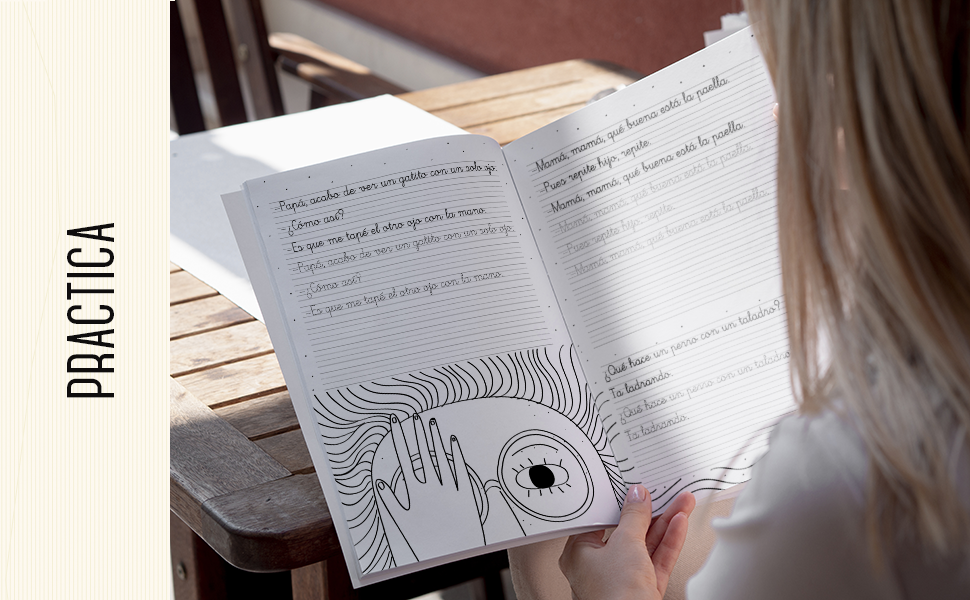 PRACTICA
-Papá, acabo de ver un gatito con un solo ojo.
-¿Cómo así?
-Es que me tapé el otro ojo con la mano.
-Papá, acabo de ver un gatito con un solo ojo.
-¿Cómo así?
-Es que me tapé el otro ojo con la mano.
-Mamá, mamá, qué buena está la paella.
-Pues repite hijo, repite.
-Mamá, mamá, qué buena está la paella.
-Mamá, mamá, qué buena está la paella.
-Pues repite hijo, repite.
-Mamá, mamá, qué buena está la paella.
¿Qué hace un perro con un taladro?
Ta ladrando.
¿Qué hace un perro con un taladro
Ta ladrando.